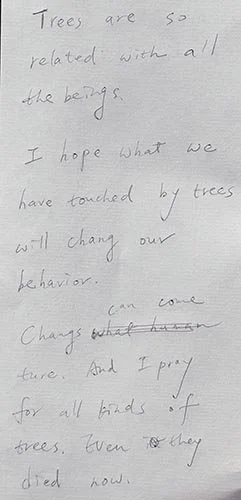 Trees are so
related with all
the beings.
I hope what we
have touched by trees
will chang our
behavior.
can come
Changs what human
ture. And I pray
for all kinds of
trees. Even they
died now.